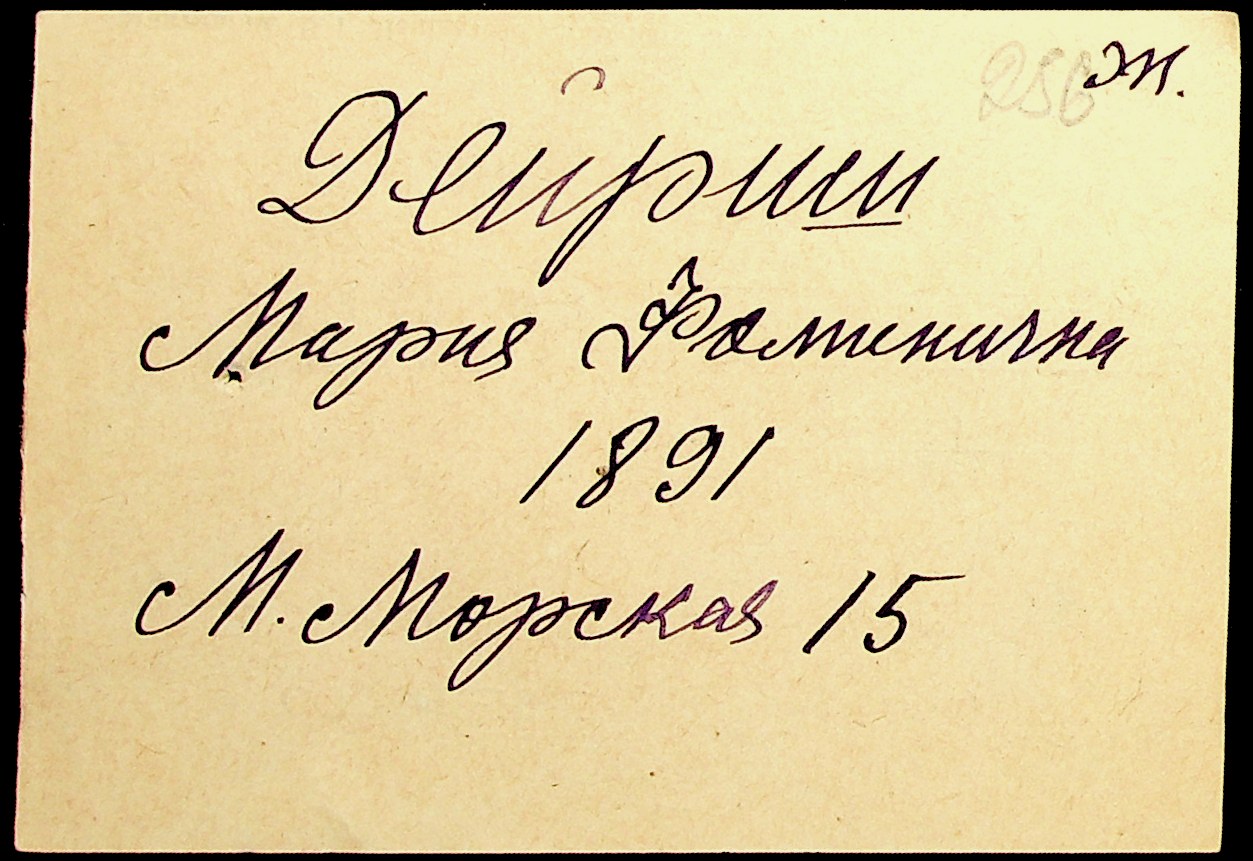 256 ж.
Дейриш
Мария Фоминична
1891
М. Морская 15